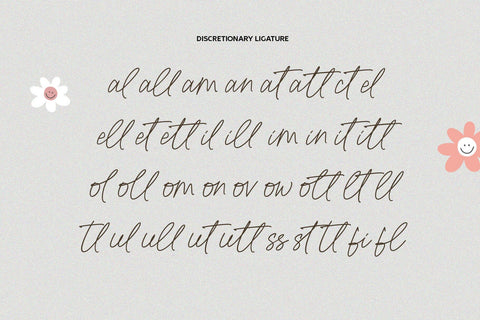 DISCRETIONARY LIGATURE
al all am an at att ct el
ell et ett il ill im in it itt
ol oll om on ov ow ott lt ll
tl ul ull ut utt ss st tl fi fl